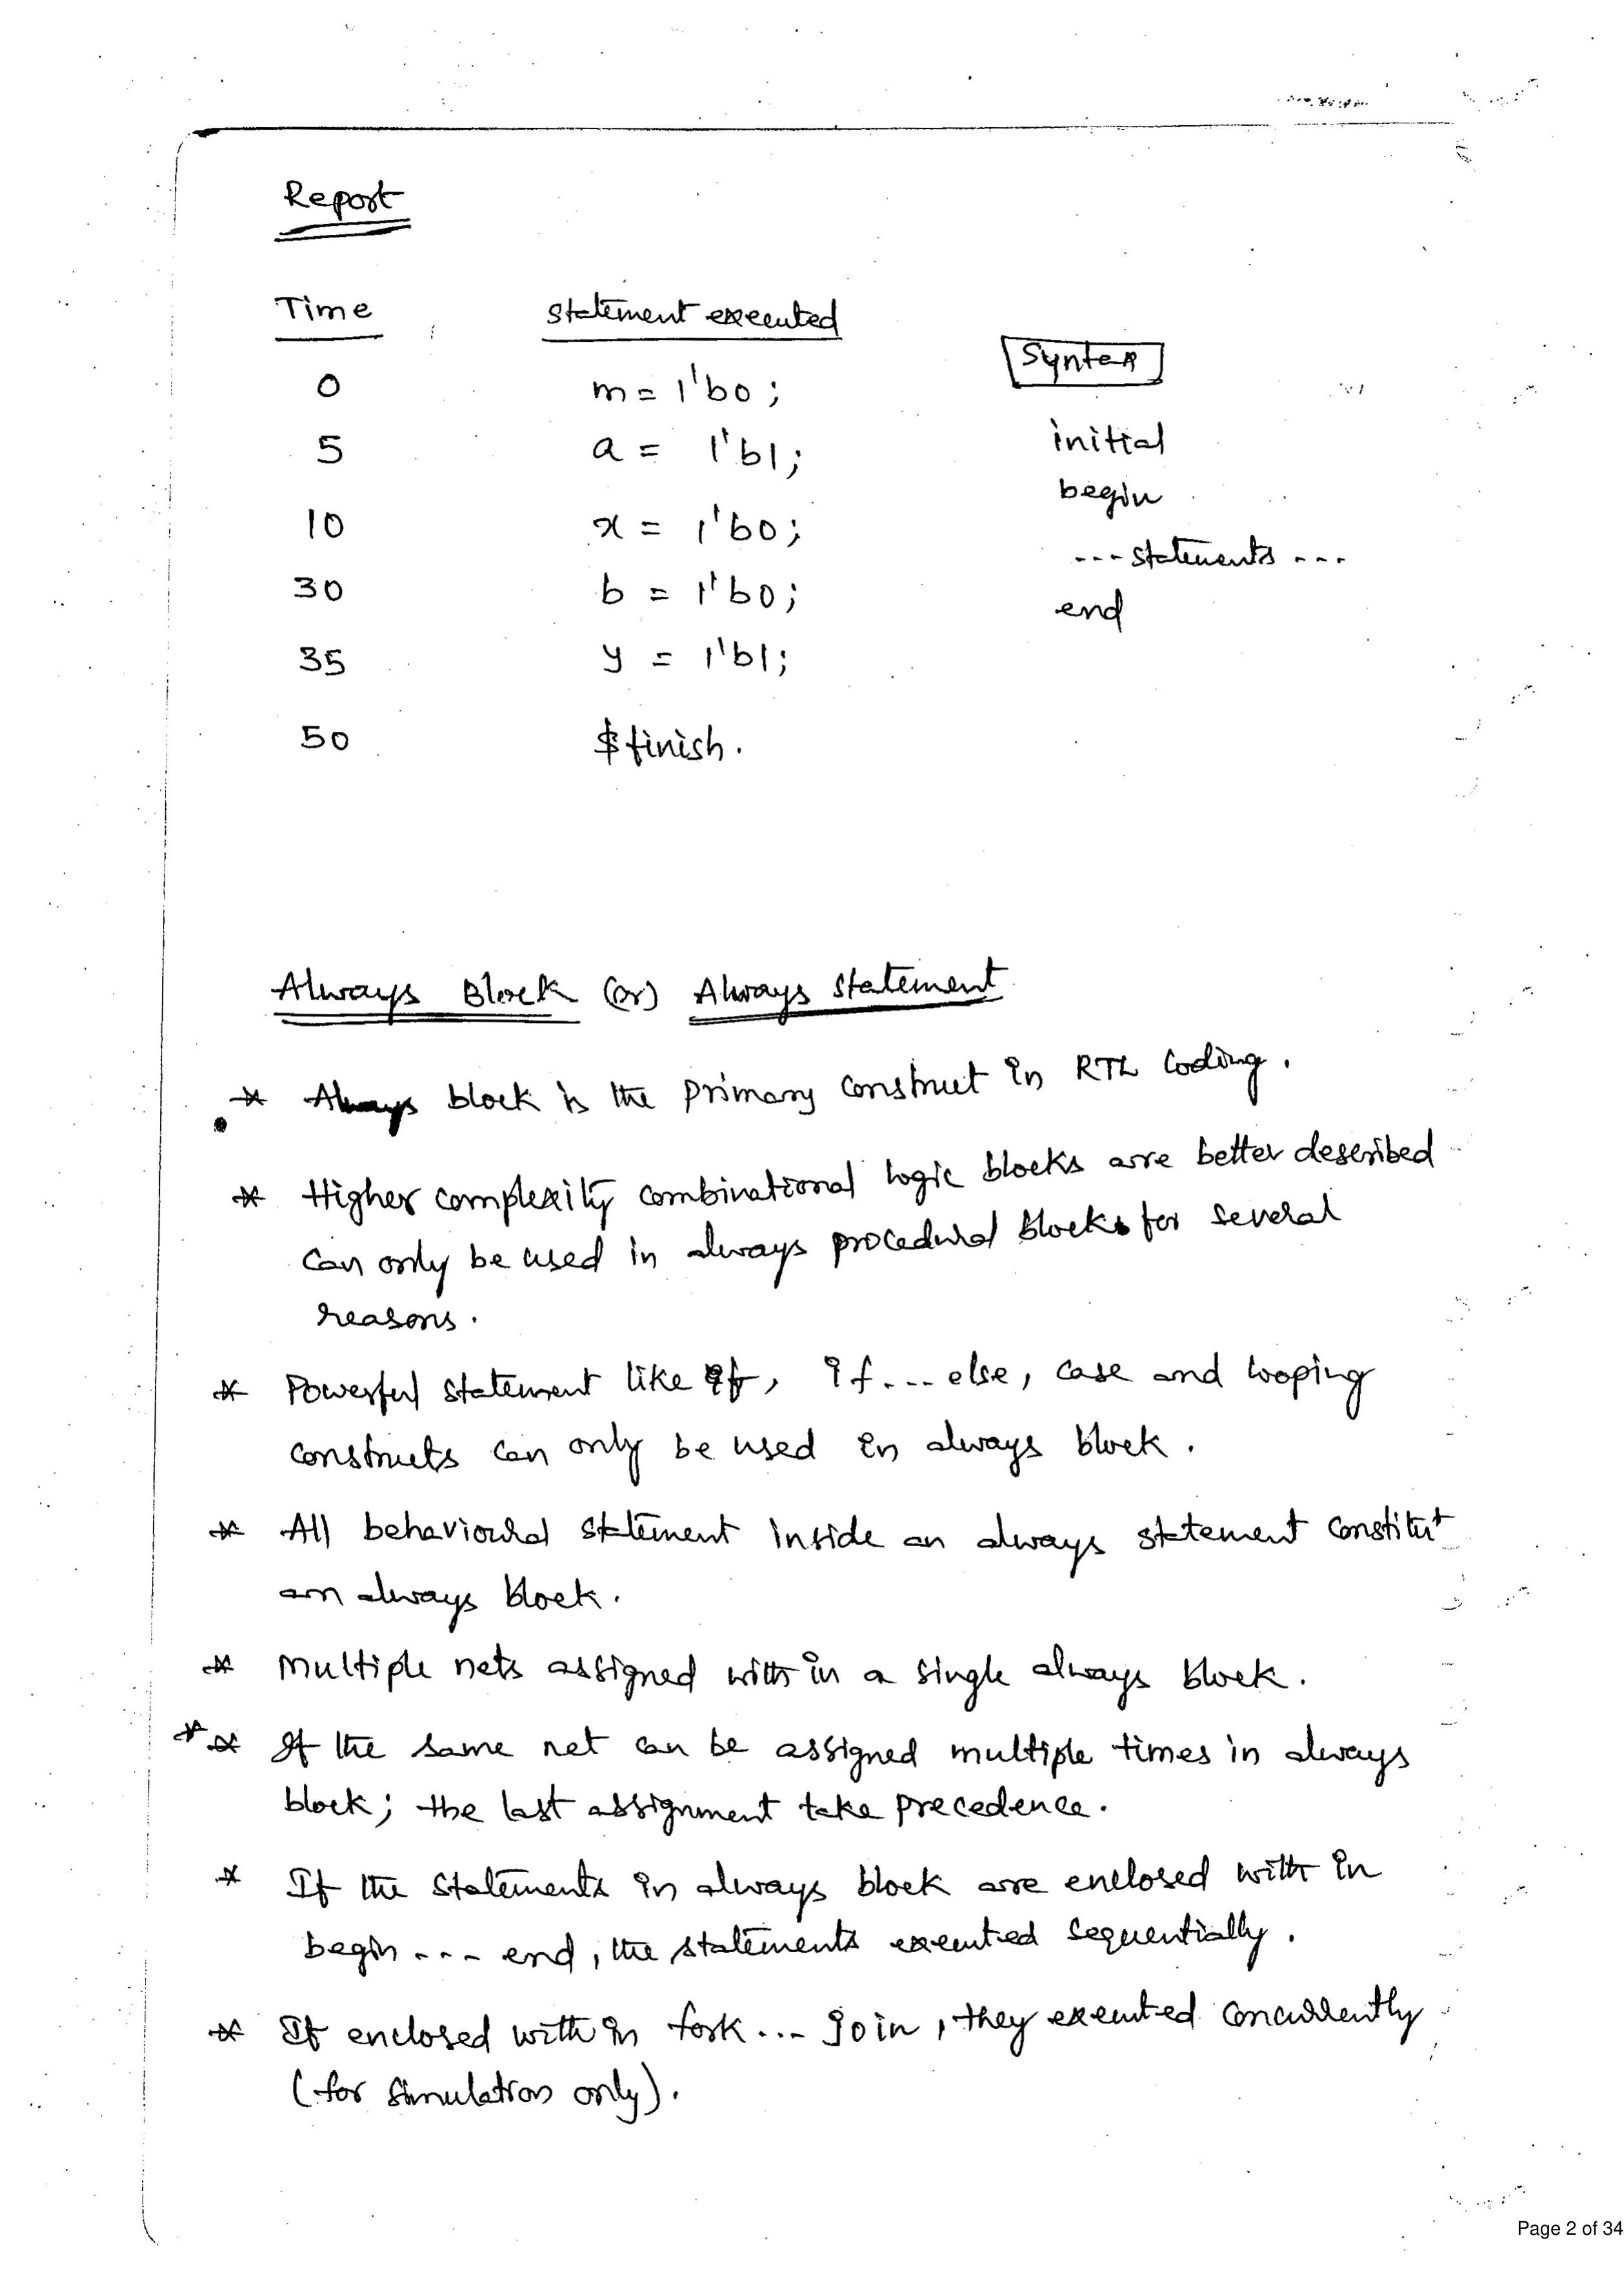 Report
Time statement executed
0 m = 1'b0;
5 a = 1'b1;
10 x = 1'b0;
30 b = 1'b0;
35 y = 1'b1;
50 $finish.
Syntax
initial
begin
--- statements ---
end
Always Block (or) Always Statement
* Always block is the primary construct in RTL Coding.
* Higher complexity combinational logic blocks are better described
can only be used in always procedural blocks for several
reasons.
* Powerful statement like if, if --- else, case and looping
constructs can only be used in always block.
* All behavioural statement inside an always statement constitut
an always block.
* Multiple nets assigned with in a single always block.
* * If the same net can be assigned multiple times in always
block; the last assignment take precedence.
* If the statements in always block are enclosed with in
begin --- end, the statements executed sequentially.
* If enclosed with in fork --- join, they executed concurrently
(for simulation only).
Page 2 of 34